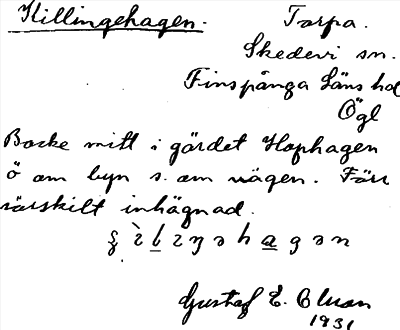 Killingehagen. Torpa.
Skedevi sn.
Finspånga läns hd
Ögl
Backe mitt i gärdet Hophagen
ö om byn s. om vägen. Förr
särskilt inhägnad.
Gustaf E.
1931